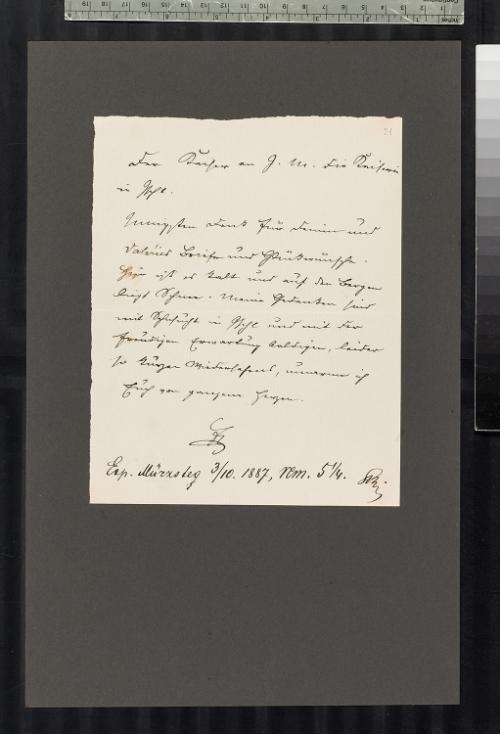 21
Der Kaiser an I. M. die Kaiserin
in Ischl.
Innigsten Dank für Deine und
Valéries Briefe und Glückwünsche.
Hier ist es kalt und auf den Bergen
liegt Schnee. Meine Gedanken sind
mit Sehnsucht in Ischl und mit der
freudigen Erwartung baldigen, leider
so kurzen Wiedersehens, umarme ich
Euch von ganzem Herzen.
Exp. Mürzsteg 3/10. 1887, Nm. 5 1/4.